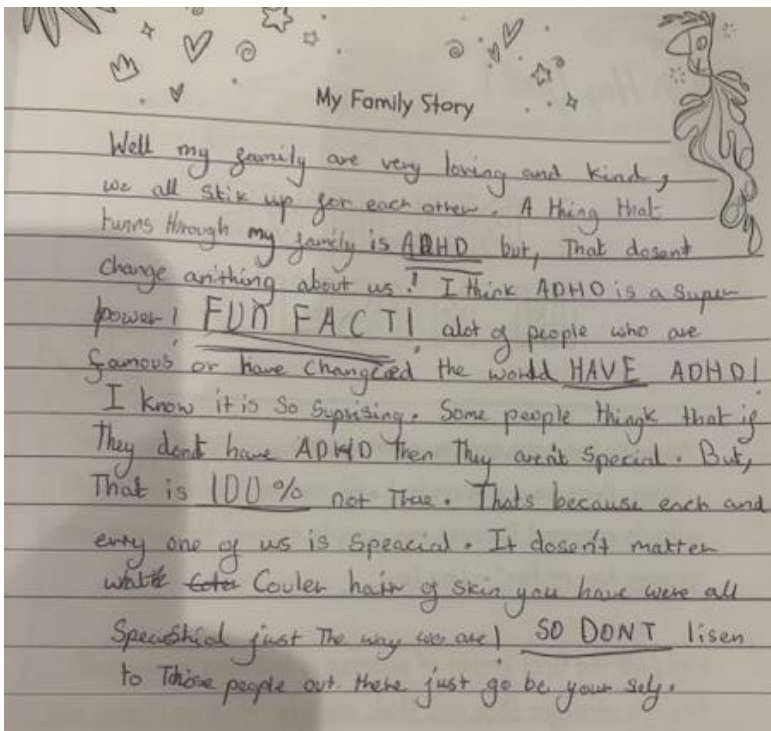 My Family Story
Well my family are very loving and kind,
we all stik up for each other. A thing that
runns through my family is ADHD but, That dosent
change anithing about us! I think ADHD is a super
power! FUN FACT! alot of people who are
famous or have changed the world HAVE ADHD!
I know it is so suprising. Some people thingk that if
They dont have ADHD Then They aren't special. But,
That is 100% not True. Thats because each and
evry one of us is speacial. It dosen't matter
wat Couler hair of skin you have were all
just The way we are! SO DONT lisen
to Those people out there just go be your self.